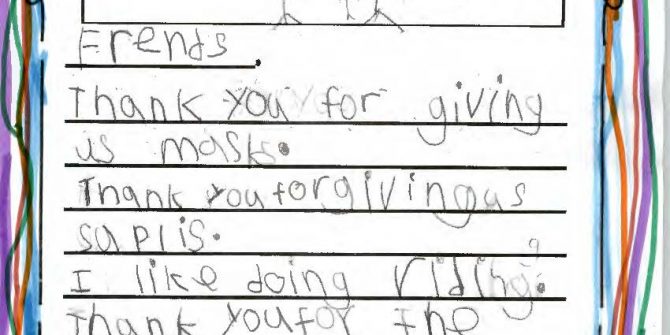 Frends.
Thank you for giving
us mask.
Thank you for giving us
saplis.
I like doing riding.
Thank you for the